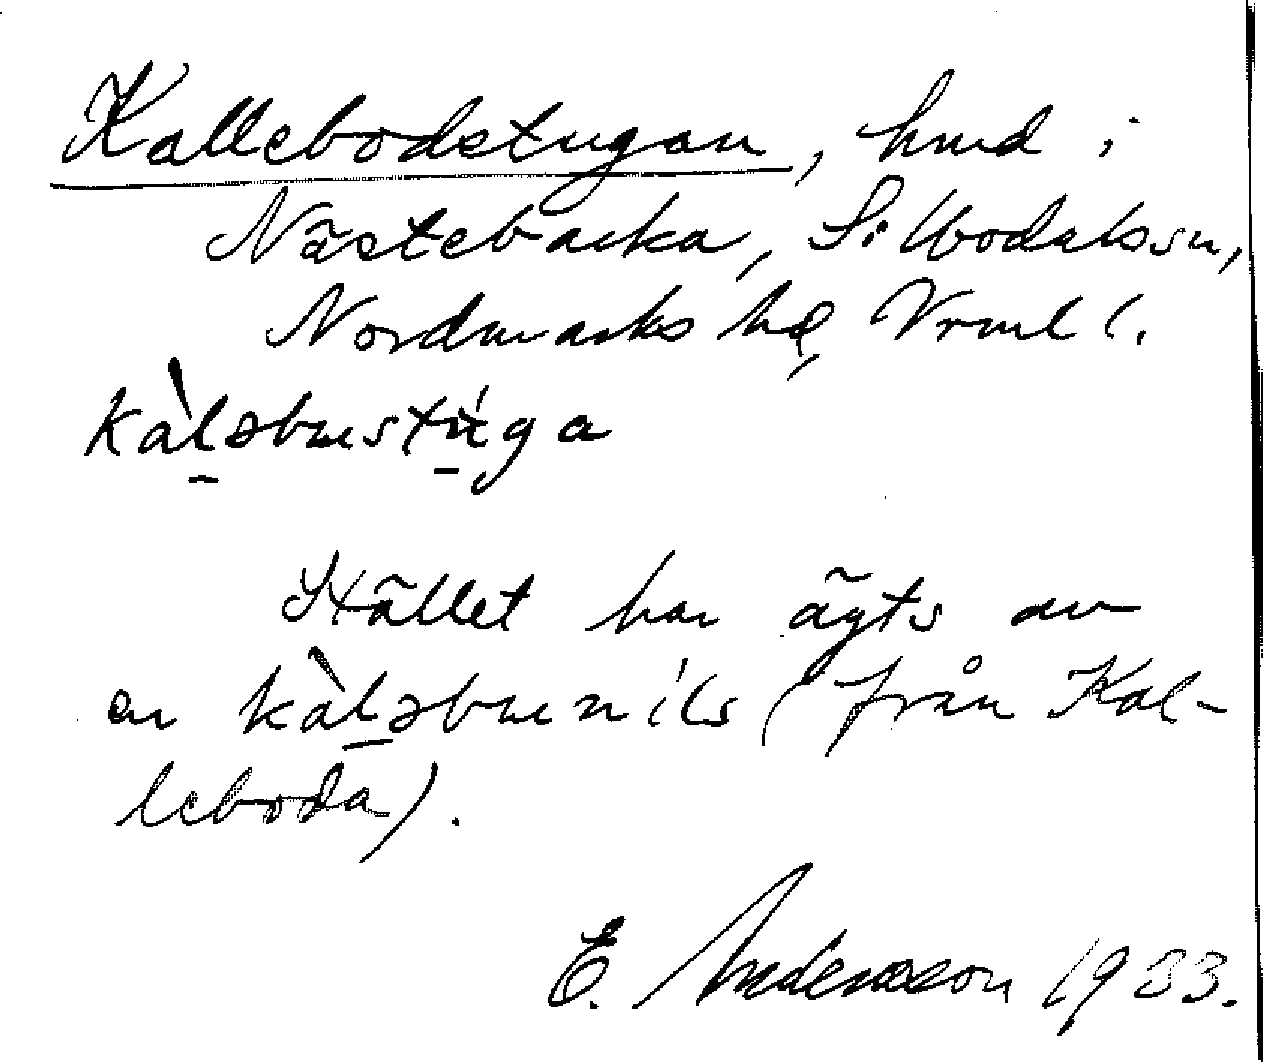 Kallebodstugan, hmd i
Nästebacka, Silbodals sn,
Nordmarks hd, Vrml.
kàlǝbustúga
Stället har ägts av
en kàlǝbu nils (från Kal-
leboda).
E. Andersson 1933.